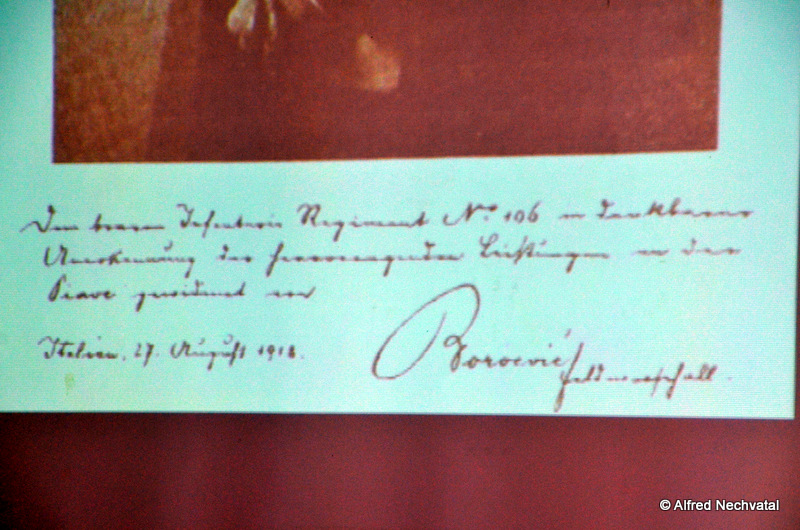 Dem braven Infanterie Regiment No 106 in dankbarer
Anerkennung der hervorragenden Leistungen an der
Piave gewidmet von
Italien, 27. August 1918.
Boroević
Feldmarschall.
© Alfred Nechvatal